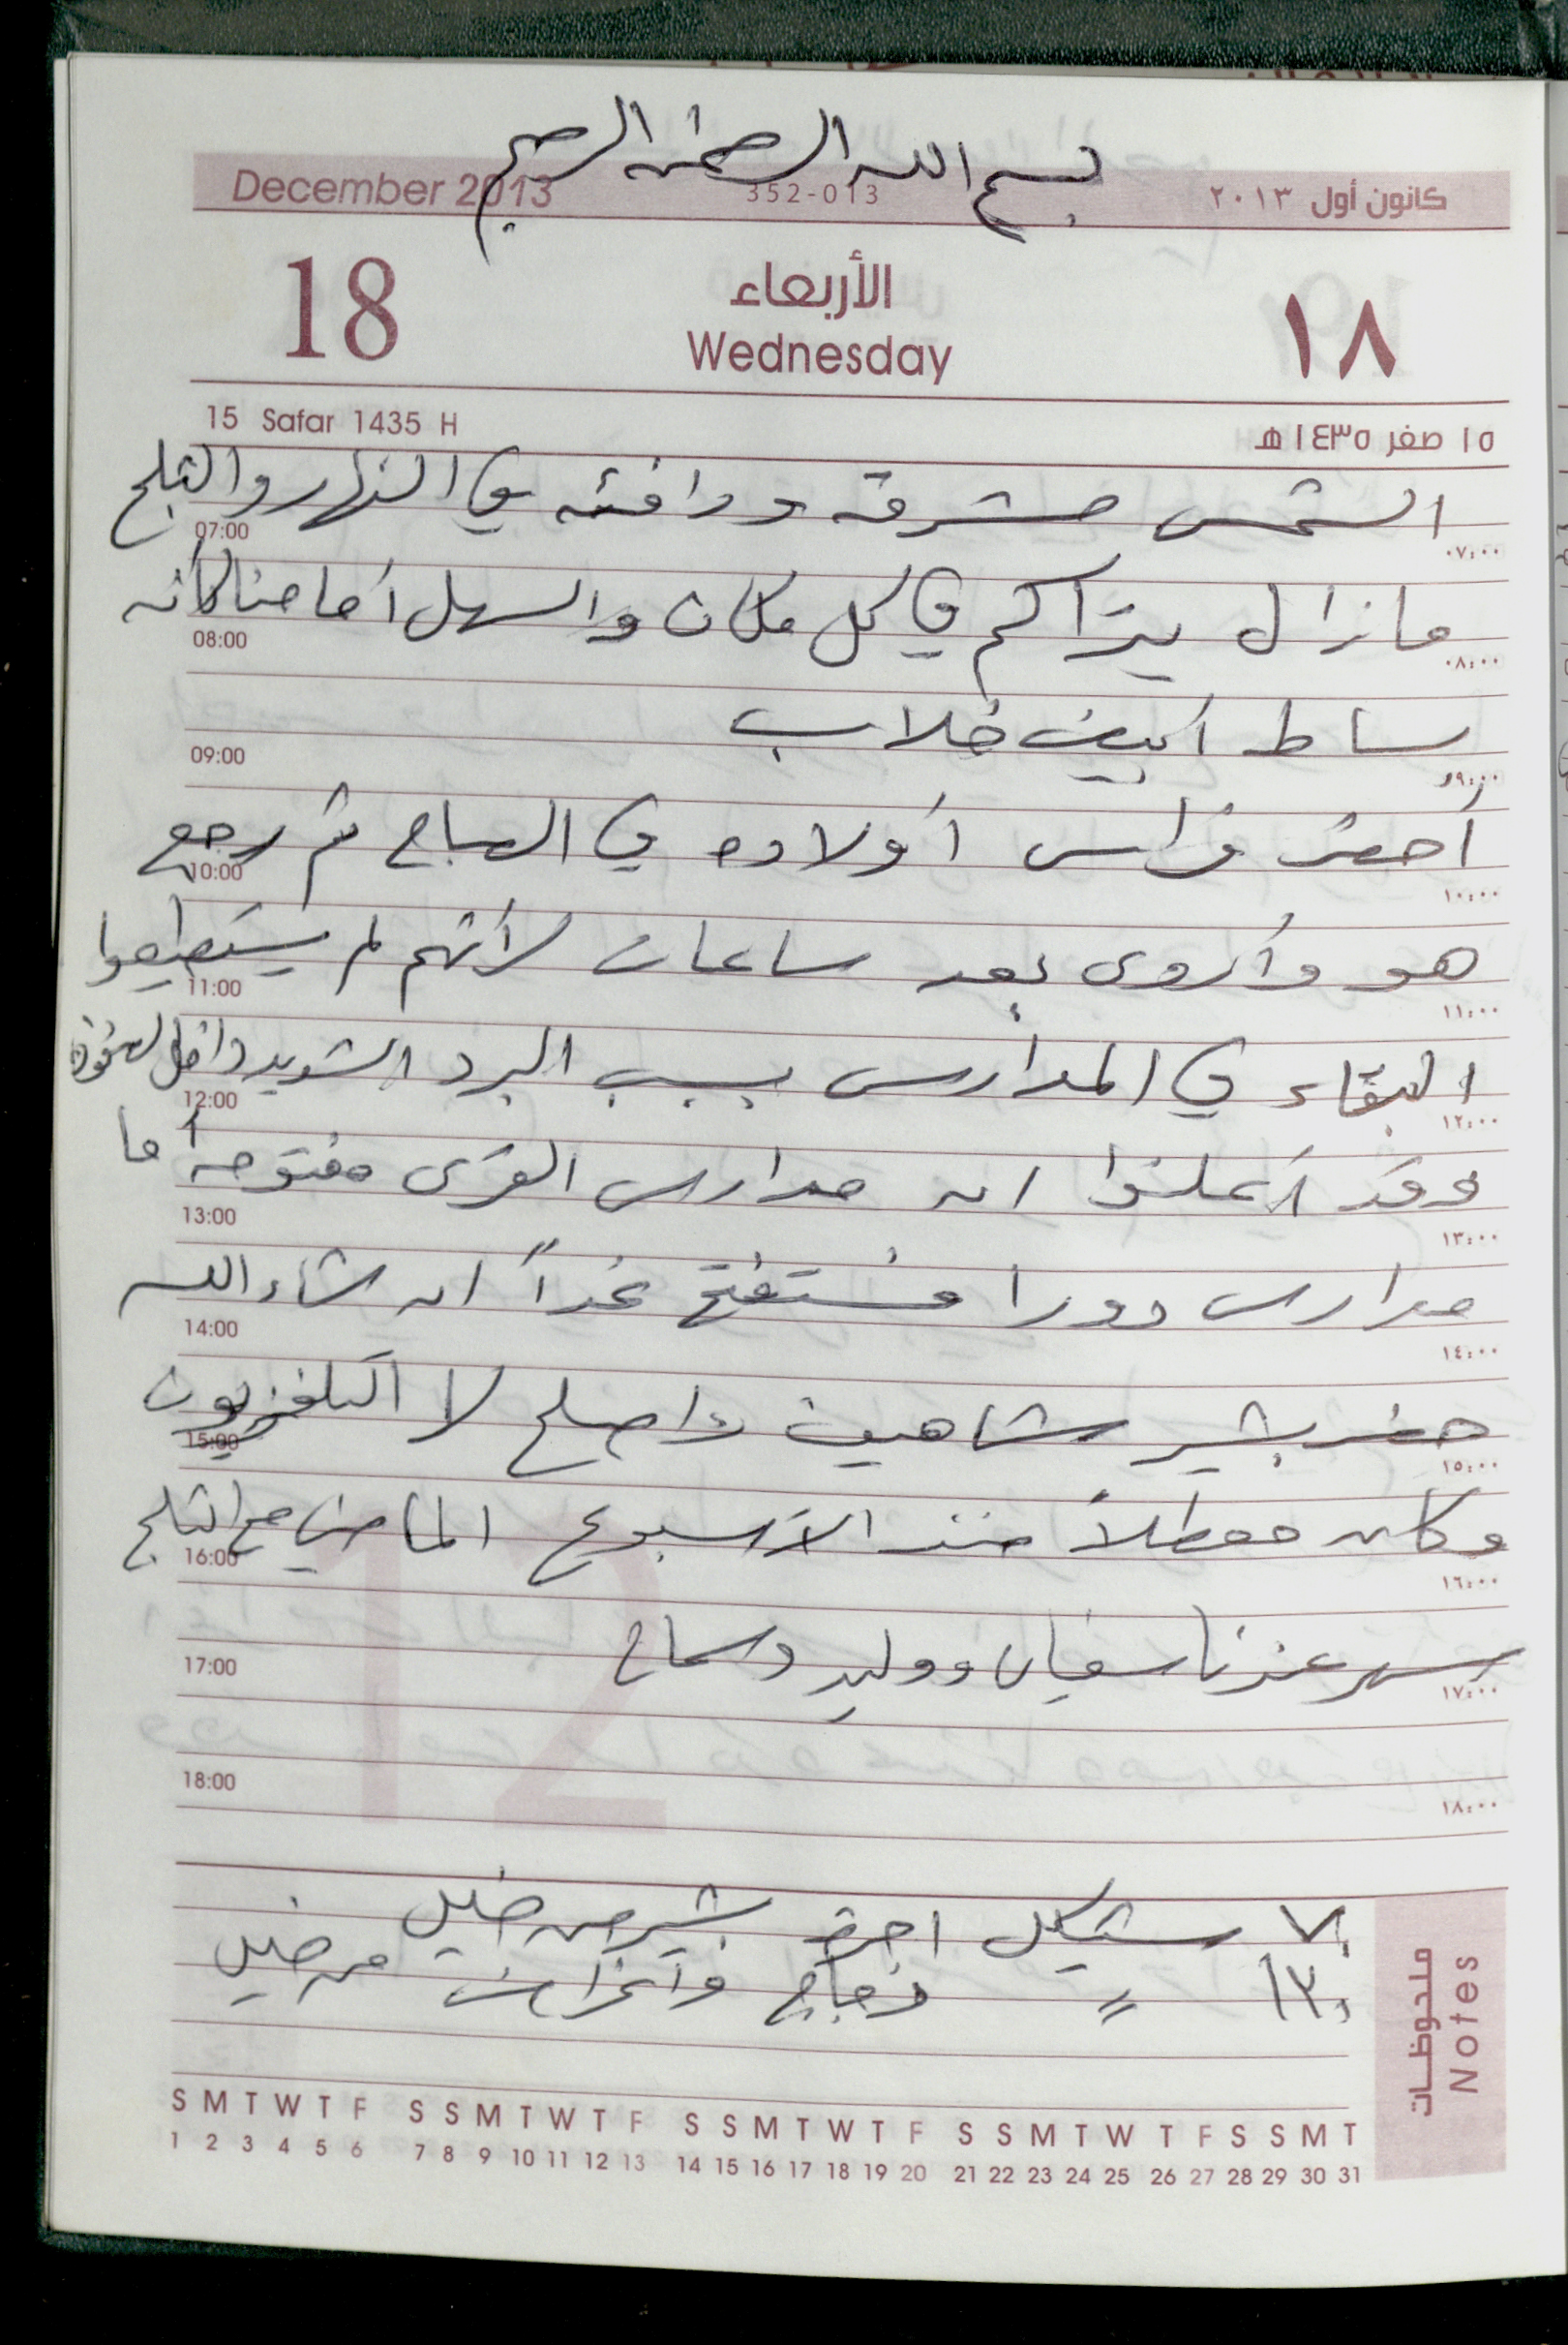 بسم الله الرحمن الرحيم
December 2013 352-013 كانون أول ٢٠١٣
18 الأربعاء ١٨
Wednesday
15 Safar 1435 H ١٥ صفر ١٤٣٥ هـ
الشمس مشرقه ودافئه في النهار والثلج
07:00 ٠٧:٠٠
مازال يتراكم في كل مكان والسهل أمامنا كأنه
08:00 ٠٨:٠٠
بساط أبيض خلاب
09:00 ٠٩:٠٠
أحضر فراس أولاده في الصباح ثم رجع
10:00 ١٠:٠٠
هو وأروى بعد ساعات لأنهم لم يستطيعوا
11:00 ١١:٠٠
البقاء في المدارس بسبب البرد الشديد داخل الصفوف
12:00 ١٢:٠٠
وقد أعلنوا ان مدارس القرى مفتوحه أما
13:00 ١٣:٠٠
مدارس دورا فستفتح غداً ان شاء الله
14:00 ١٤:٠٠
حضر بشير شاهين واصلح لنا التلفزيون
15:00 ١٥:٠٠
وكان معطلاً منذ الأسبوع الماضي مع الثلج
16:00 ١٦:٠٠
سهر عندنا سفيان ووليد وسماح
17:00 ١٧:٠٠
18:00 ١٨:٠٠
٧٠ شيكل اجرة بشير من
١٣٠ " دجاج وأغراض من
ملحوظات
Notes
S M T W T F S S M T W T F S S M T W T F S S M T W T F S S M T
1 2 3 4 5 6 7 8 9 10 11 12 13 14 15 16 17 18 19 20 21 22 23 24 25 26 27 28 29 30 31